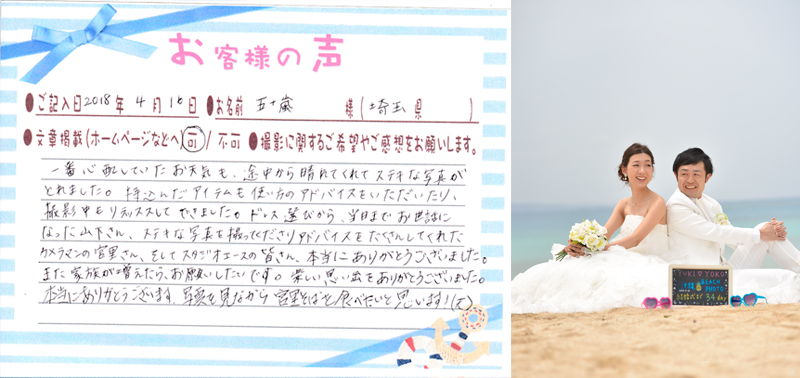 お客様の声
●ご記入日2018年 4月18日 ●お名前 五十嵐 様(埼玉県 )
●文章掲載(ホームページなどへ 可 / 不可 ●撮影に関するご希望やご感想をお願いします。
一番心配していたお天気も、途中から晴れてくれてステキな写真が
とれました。持込んだアイテムも使い方のアドバイスをいただいたり、
撮影中もリラックスしてできました。ドレス選びから、当日までお世話に
なった山下さん、ステキな写真を撮ってくださりアドバイスをたくさんしてくれた
カメラマンの宮里さん、そしてスタジオエースの皆さん、本当にありがとうございました。
また家族が増えたら、お願いしたいです。楽しい思い出をありがとうございました。
本当にありがとうございます。写真を見ながら宮里そばを食べたいと思います!(笑)
YUKI YOKO
BEACH
PHOTO
34 day